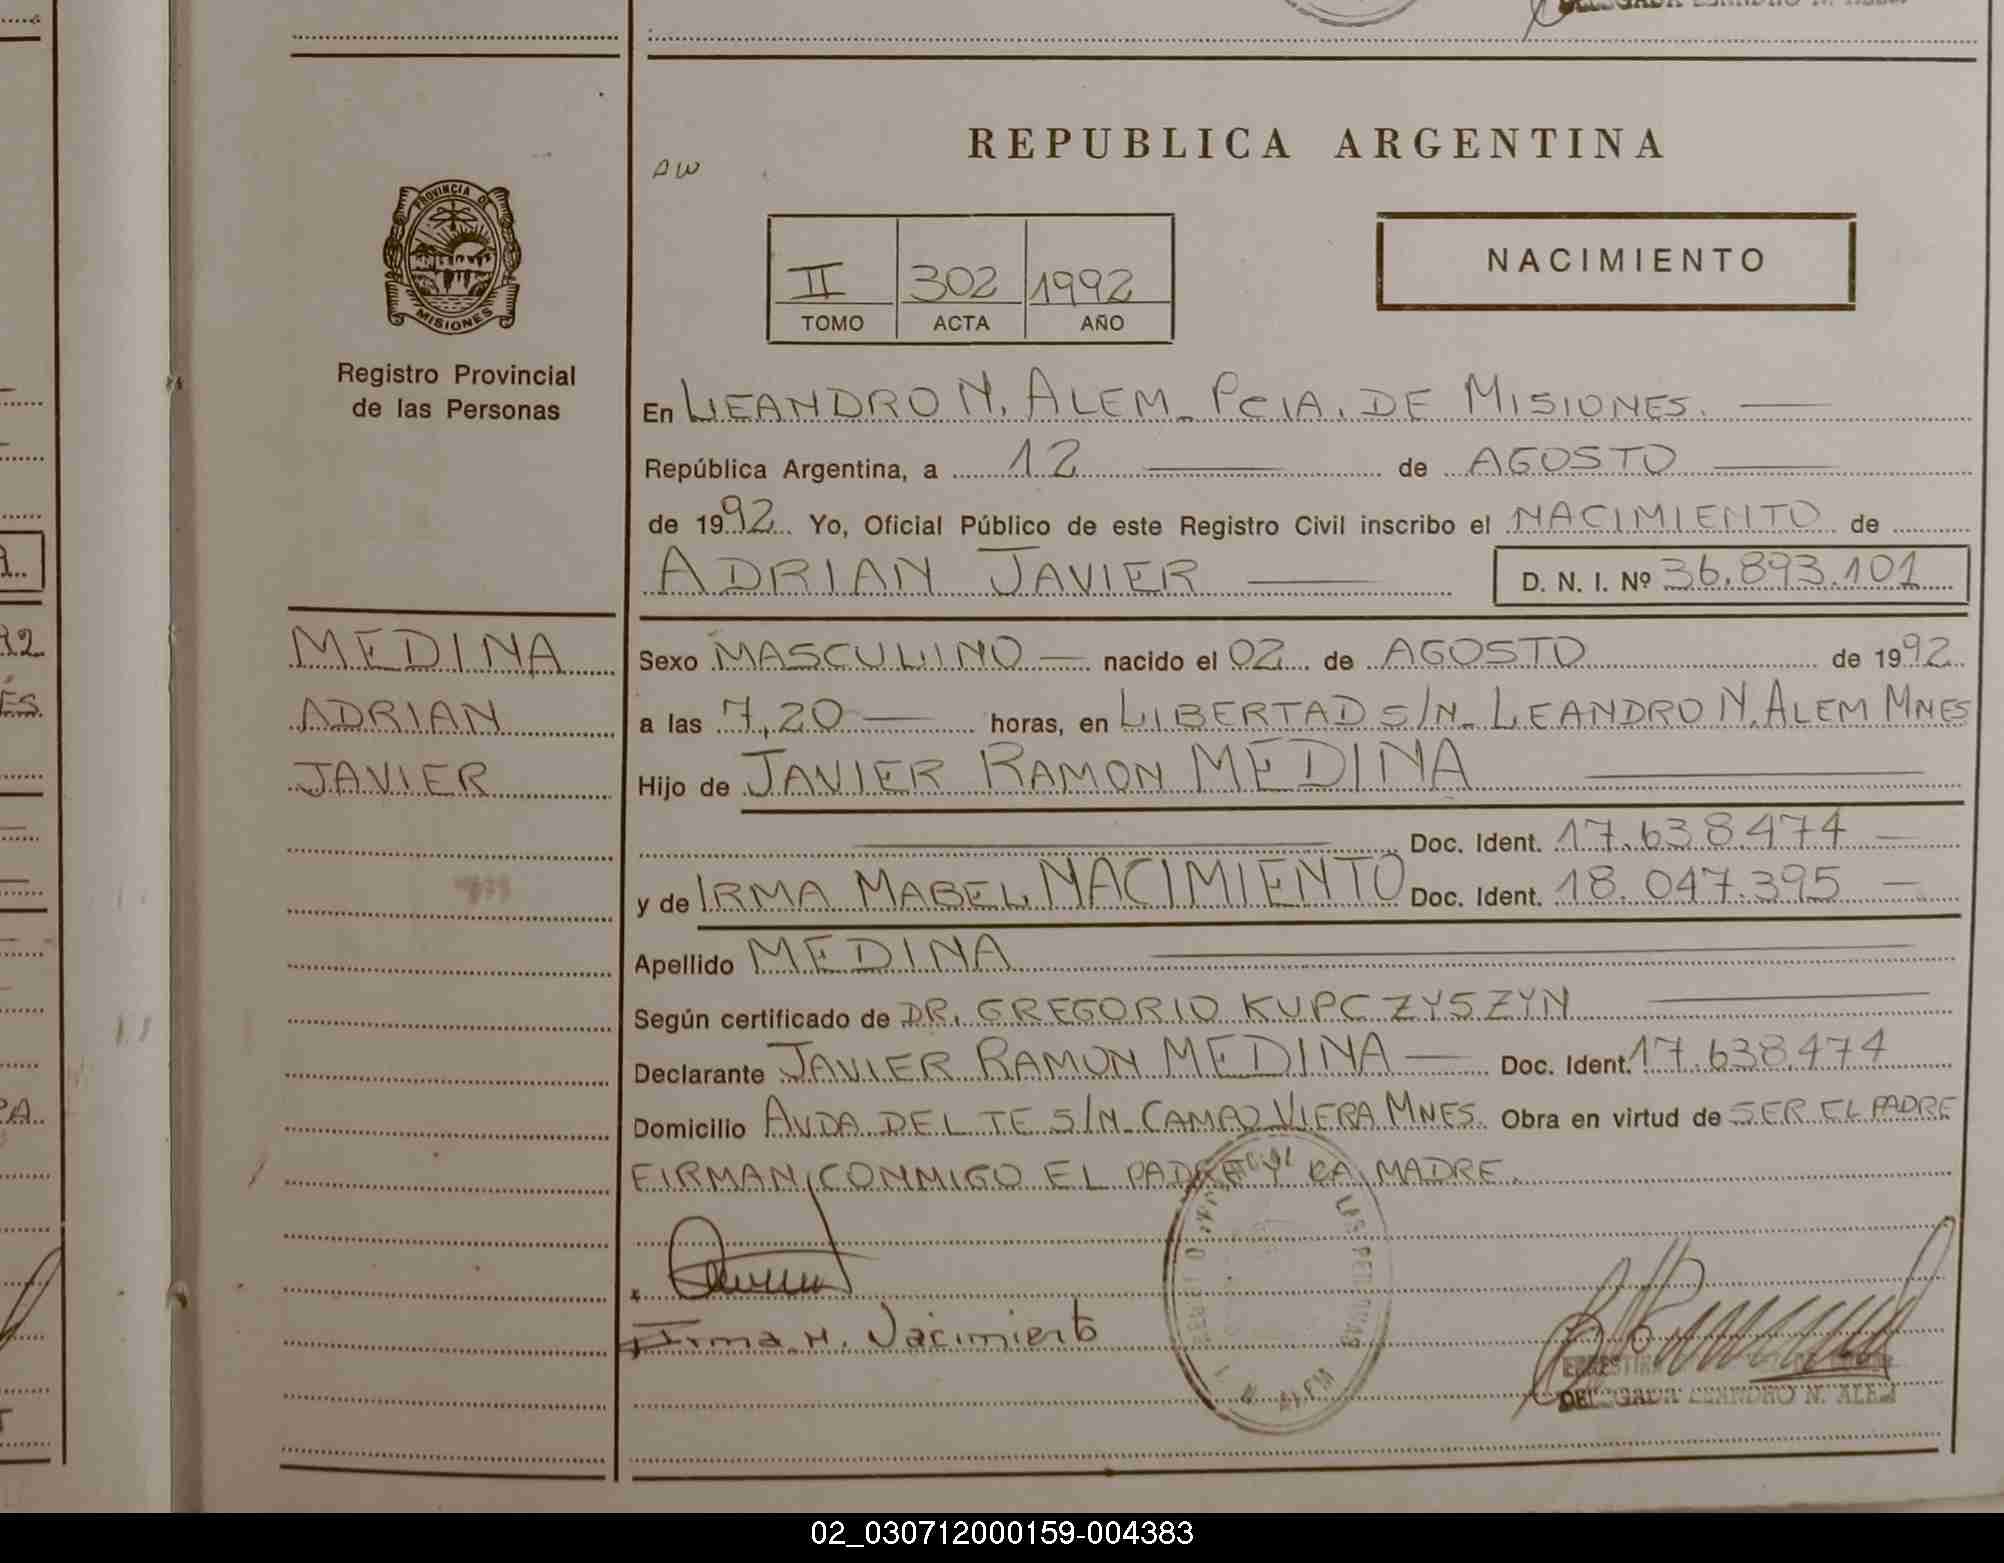 REPUBLICA ARGENTINA
AW
PROVINCIA DE
MISIONES
Registro Provincial
de las Personas
II 302 1992
TOMO ACTA AÑO
NACIMIENTO
En LEANDRO N. ALEM - PCIA. DE MISIONES.
República Argentina, a 12 de AGOSTO
de 1992 Yo, Oficial Público de este Registro Civil inscribo el NACIMIENTO de
ADRIAN JAVIER D. N. I. Nº 36.893.101
MEDINA
ADRIAN
JAVIER
Sexo MASCULINO nacido el 02 de AGOSTO de 1992
a las 7,20 horas, en LIBERTAD S/N - LEANDRO N. ALEM MNES
Hijo de JAVIER RAMON MEDINA
Doc. Ident. 17.638.474
y de IRMA MABEL NACIMIENTO Doc. Ident. 18.047.395
Apellido MEDINA
Según certificado de DR. GREGORIO KUPCZYSZYN
Declarante JAVIER RAMON MEDINA Doc. Ident. 17.638.474
Domicilio AVDA DEL TE S/N - CAMPO VIERA MNES. Obra en virtud de SER EL PADRE
FIRMAN CONMIGO EL PADRE Y LA MADRE.
Irma M. Nacimiento
DELEGADA LEANDRO N. ALEM
02_030712000159-004383